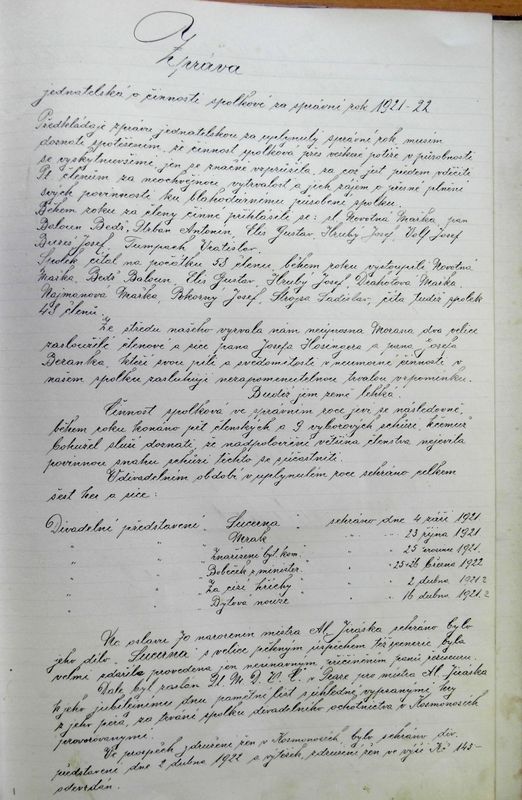 Zpráva
jednatelská o činnosti spolkové za správní rok 1921-22
Předkládaje zprávu jednatelskou za uplynulý správní rok musím
doznati s potěšením, že činnost spolková přes veškeré potíže v působnosti
se vyskytnuvšími jen se značně vzpružila, za což jest předem vděčiti
Pt. členům za neochvějnou vytrvalost a jich zájem o přesné plnění
svých povinností ku blahodárnému působení spolku.
Během roku za členy činné přihlásili se: sl. Novotná Mařka, pan
Baloun Bedř., Urban Antonín, Elis Gustav, Hrubý Josef, Volf Josef
Bureš Josef, Tumpach Vratislav.
Spolek čítal na počátku 53 členů, během roku vystoupili Novotná
Mařka, Bedř. Baloun, Elis Gustav, Hrubý Josef, Drahotová Mařka
Najmanová Mařka, Pokorný Josef, Ladislav, čítá tudíž spolek
45 členů.
Ze středu našeho vyrvala nám neúprosná Morana dva velice
zasloužilé členové a sice pana Josefa Hösingera a pana Josefa
Beranka, kteří svou pílí a svědomitostí v neúmorné činnosti v
našem spolku zasluhují nezapomenutelnou trvalou vzpomínku.
Budiž jim země lehká.
Činnost spolková ve správním roce jeví se následovně:
během roku konáno pět členských a 9 výborových schůzí, kčemuž
bohužel sluší doznati, že nadpoloviční většina členstva nejevila
povinnou snahu schůzí těchto se súčastniti.
V divadelním období v uplynulém roce sehráno celkem
šest her a sice:
Divadelní představení „Lucerna“ sehráno dne 4 září 1921
„ „Mrak“ „ „ 23 října 1921
„ „Znásilnění byt. kom.“ „ „ 25 1921.
„ „Bobeček p. minister“ „ „ 25+26 března 1922
„ „Za cizí hříchy“ „ „ 2 dubna 1922
„ „Bytová nouze“ „ „ 16 dubna 1922
Na oslavu 70 narozenin mistra Al. Jiráska sehráno bylo
jeho dílo „Lucerna“ s velice pěkným úspěchem též peněž. byla
velmi zdařile provedena jen neúnavným přičiněním pánů režisérů.
Dále byl zaslán Ú. M. D. V. Č. v Praze pro mistra Al. Jiráska
k jeho jubilejnímu dnu pamětní list s úhledně vypsanými hry
z jeho péra, za trvání spolku divadelního ochotnictva v Kosmonosích
provozovanými.
Ve prospěch sdružení žen v Kosmonosích bylo sehráno div.
představení dne 2 dubna 1922 a výtěžek sdružení žen ve výši Kč 145-
odevzdán.